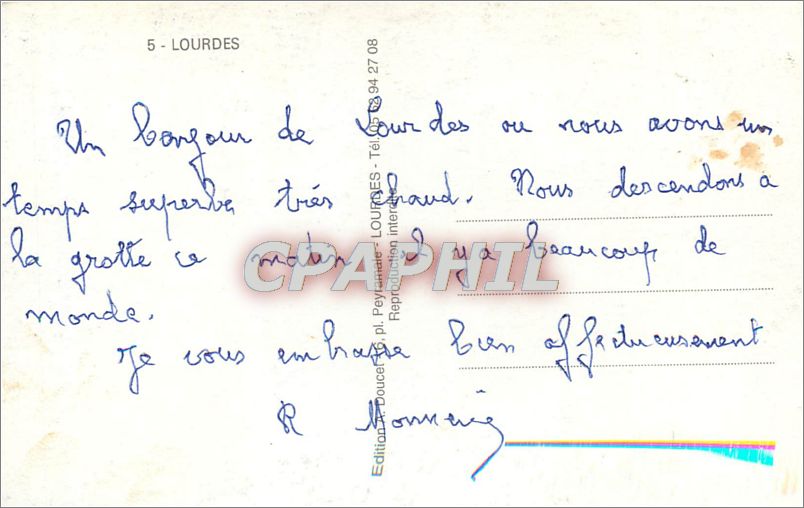 5 - LOURDES
Un bonjour de Lourdes ou nous avons un
temps superbe très chaud. Nous descendons a
la grotte ce matin il y a beaucoup de
monde.
Je vous embrasse bien affectueusement
R
Edition A. Doucet, pl. Peyramale - LOURDES - Tél. 05 62 94 27 08
Reproduction interdite
CPAPHIL